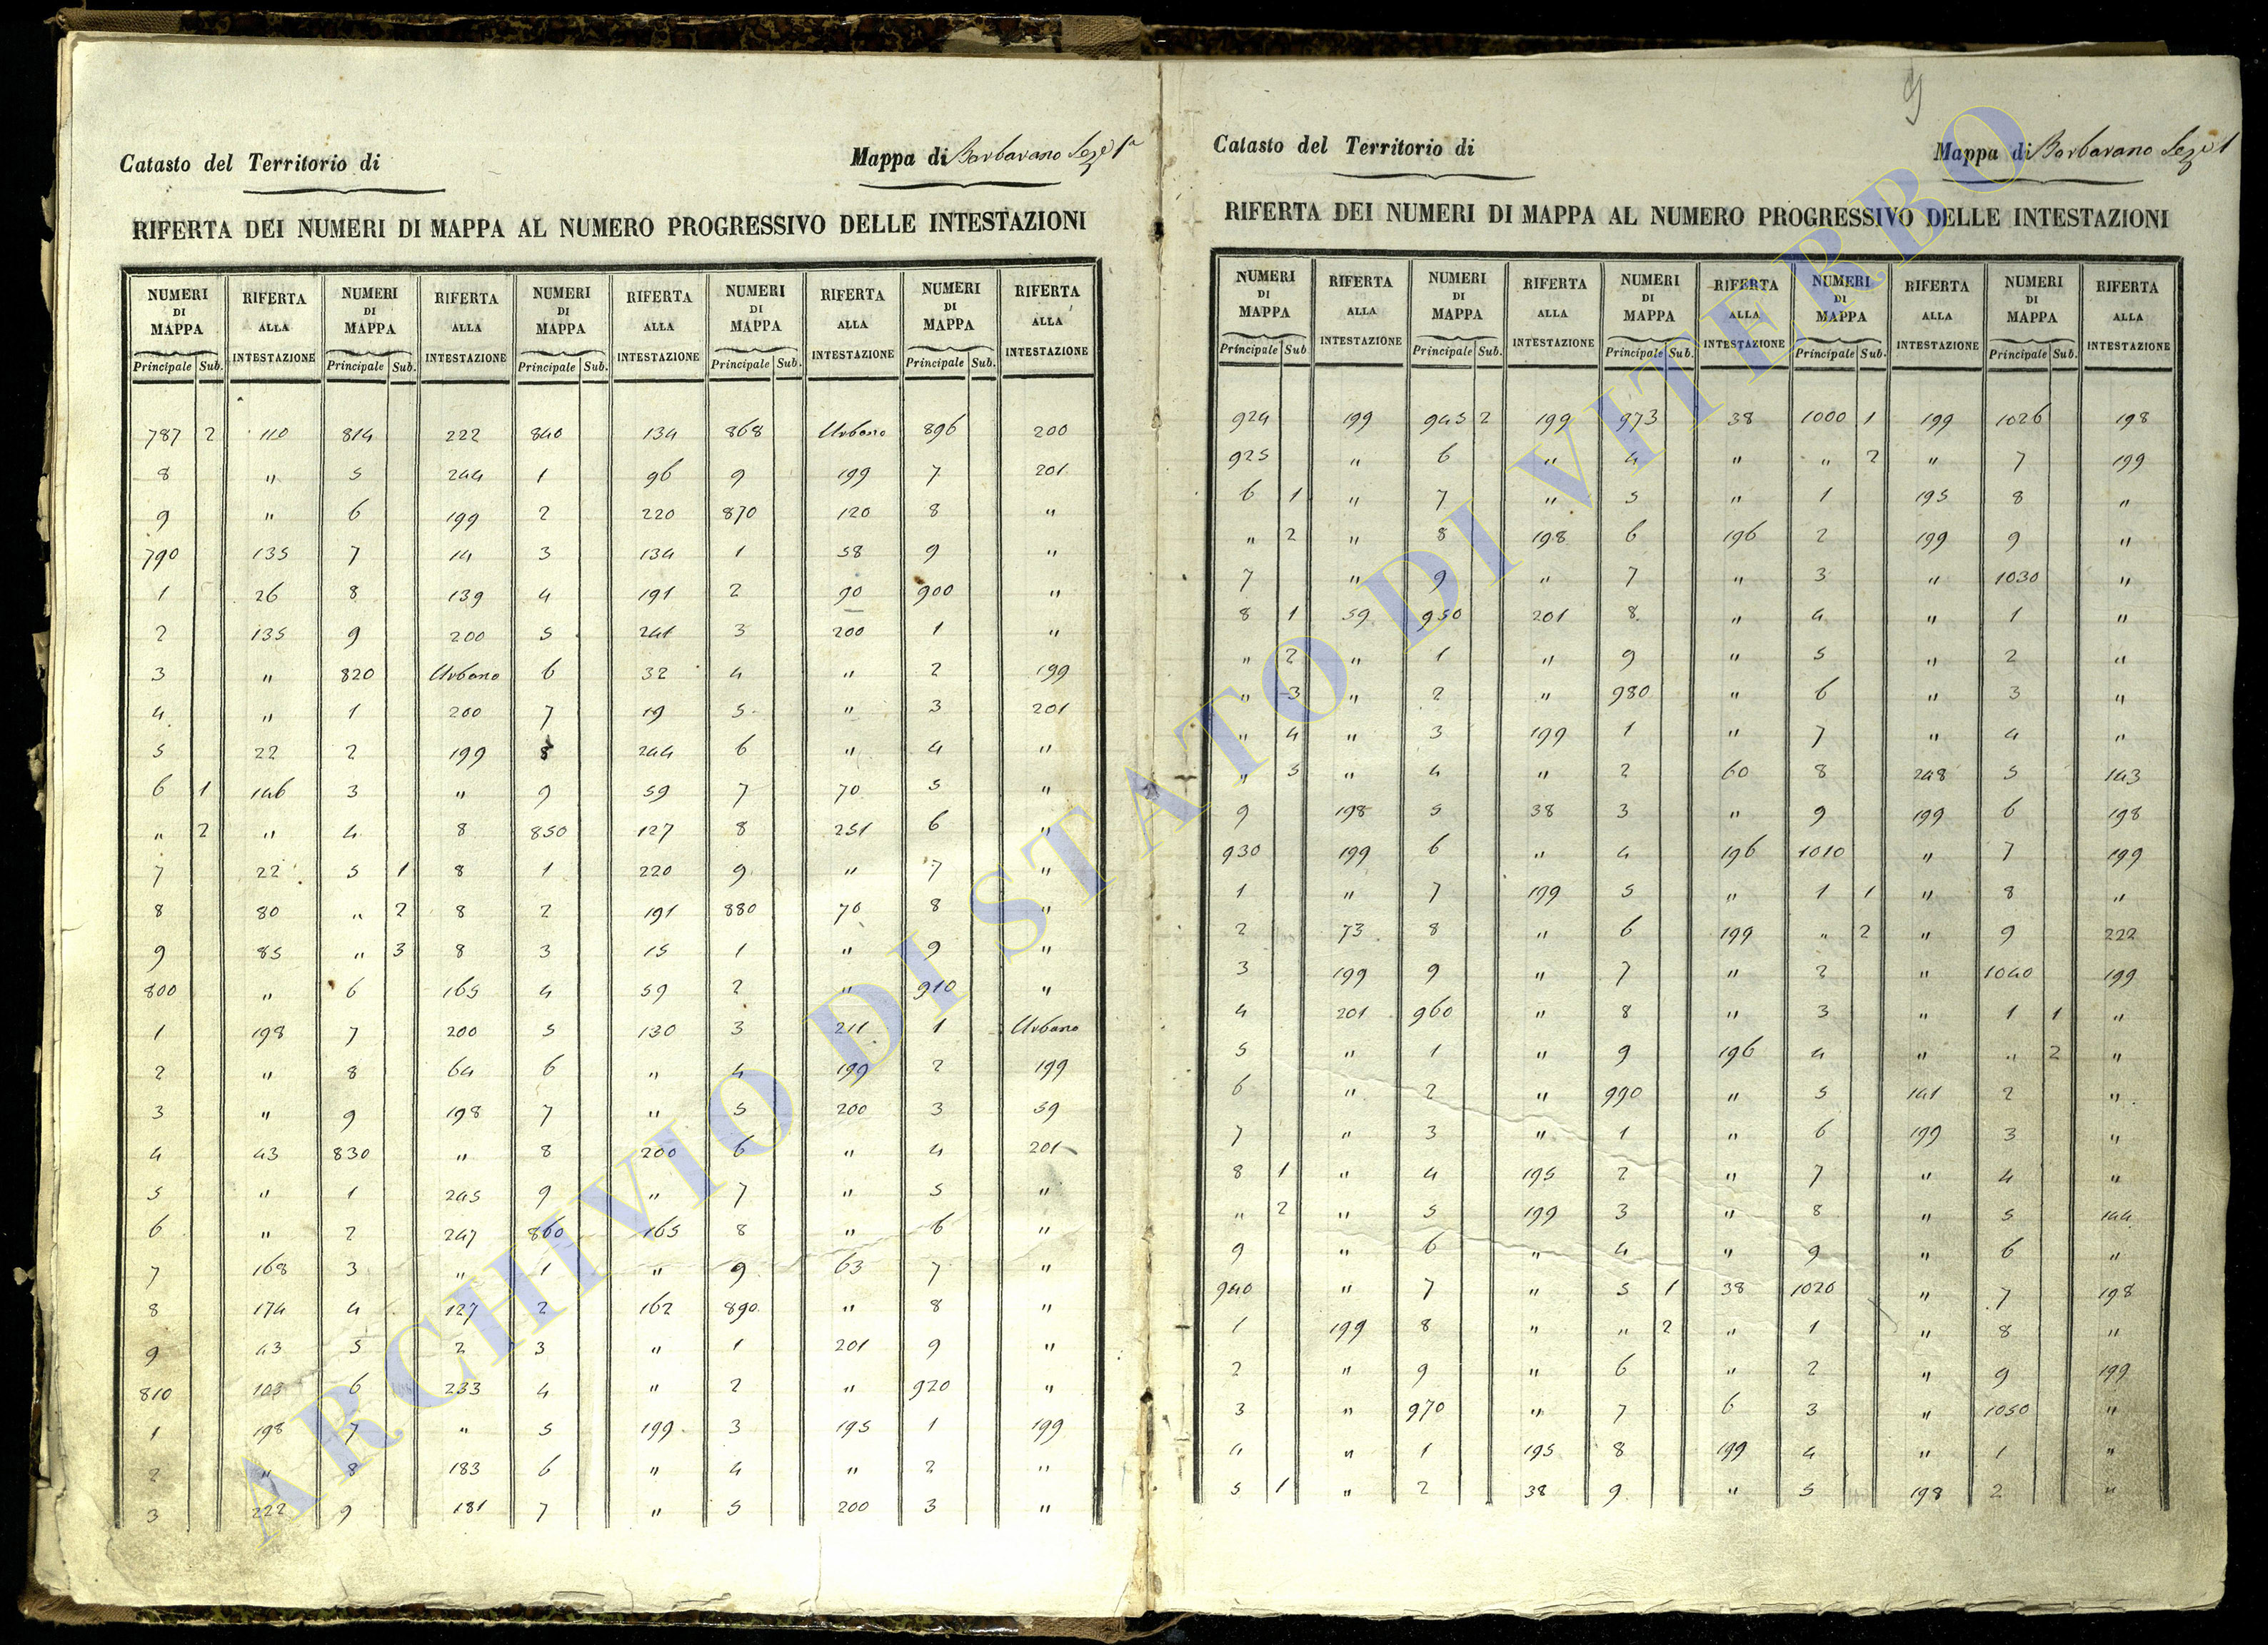 Catasto del Territorio di
Mappa di Barbarano Sez.e 1a
RIFERTA DEI NUMERI DI MAPPA AL NUMERO PROGRESSIVO DELLE INTESTAZIONI
NUMERI DI MAPPA RIFERTA ALLA INTESTAZIONE NUMERI DI MAPPA RIFERTA ALLA INTESTAZIONE NUMERI DI MAPPA RIFERTA ALLA INTESTAZIONE NUMERI DI MAPPA RIFERTA ALLA INTESTAZIONE NUMERI DI MAPPA RIFERTA ALLA INTESTAZIONE
Principale Sub. Principale Sub. Principale Sub. Principale Sub. Principale Sub.
787 2 110 814 222 840 134 868 Urbano 896 200
8 " 5 244 1 96 9 199 7 201
9 " 6 199 2 220 870 120 8 "
790 135 7 14 3 134 1 58 9 "
1 26 8 139 4 191 2 90 900 "
2 135 9 200 5 241 3 200 1 "
3 " 820 Urbano 6 32 4 " 2 199
4 " 1 200 7 19 5 " 3 201
5 22 2 199 8 244 6 " 4 "
6 1 146 3 " 9 59 7 70 5 "
" 2 " 4 8 850 127 8 251 6 "
7 22 5 1 8 1 220 9 " 7 "
8 80 " 2 8 2 191 880 70 8 "
9 85 " 3 8 3 15 1 " 9 "
800 " 6 165 4 59 2 " 910 "
1 198 7 200 5 130 3 211 1 Urbano
2 " 8 64 6 " 4 199 2 199
3 " 9 198 7 " 5 200 3 59
4 43 830 " 8 200 6 " 4 201
5 " 1 245 9 " 7 " 5 "
6 " 2 247 860 165 8 " 6 "
7 168 3 " 1 " 9 63 7 "
8 174 4 127 2 162 890 " 8 "
9 43 5 2 3 " 1 201 9 "
810 103 6 233 4 " 2 " 920 "
1 198 7 " 5 199 3 195 1 199
2 " 8 183 6 " 4 " 2 "
3 222 9 181 7 " 5 200 3 "
9
Catasto del Territorio di
Mappa di Barbarano Sez.e 1
RIFERTA DEI NUMERI DI MAPPA AL NUMERO PROGRESSIVO DELLE INTESTAZIONI
NUMERI DI MAPPA RIFERTA ALLA INTESTAZIONE NUMERI DI MAPPA RIFERTA ALLA INTESTAZIONE NUMERI DI MAPPA RIFERTA ALLA INTESTAZIONE NUMERI DI MAPPA RIFERTA ALLA INTESTAZIONE NUMERI DI MAPPA RIFERTA ALLA INTESTAZIONE
Principale Sub. Principale Sub. Principale Sub. Principale Sub. Principale Sub.
924 199 945 2 199 973 38 1000 1 199 1026 198
925 " 6 " 4 " " 2 " 7 199
6 1 " 7 " 5 " 1 195 8 "
" 2 " 8 198 6 196 2 199 9 "
7 " 9 " 7 " 3 " 1030 "
8 1 59 950 201 8 " 4 " 1 "
" 2 " 1 " 9 " 5 " 2 "
" 3 " 2 " 980 " 6 " 3 "
" 4 " 3 199 1 " 7 " 4 "
" 5 " 4 " 2 60 8 248 5 143
9 198 5 38 3 " 9 199 6 198
930 199 6 " 4 196 1010 " 7 199
1 " 7 199 5 " 1 1 " 8 "
2 73 8 " 6 199 " 2 " 9 222
3 199 9 " 7 " 2 " 1040 199
4 201 960 " 8 " 3 " 1 1 "
5 " 1 " 9 196 4 " " 2 "
6 " 2 " 990 " 5 141 2 "
7 " 3 " 1 " 6 199 3 "
8 1 " 4 195 2 " 7 " 4 "
" 2 " 5 199 3 " 8 " 5 144
9 " 6 " 4 " 9 " 6 "
940 " 7 " 5 1 38 1020 " 7 198
1 199 8 " " 2 " 1 " 8 "
2 " 9 " 6 " 2 " 9 199
3 " 970 " 7 6 3 " 1050 "
4 " 1 195 8 199 4 " 1 "
5 1 " 2 38 9 " 5 198 2 "
ARCHIVIO DI STATO DI VITERBO